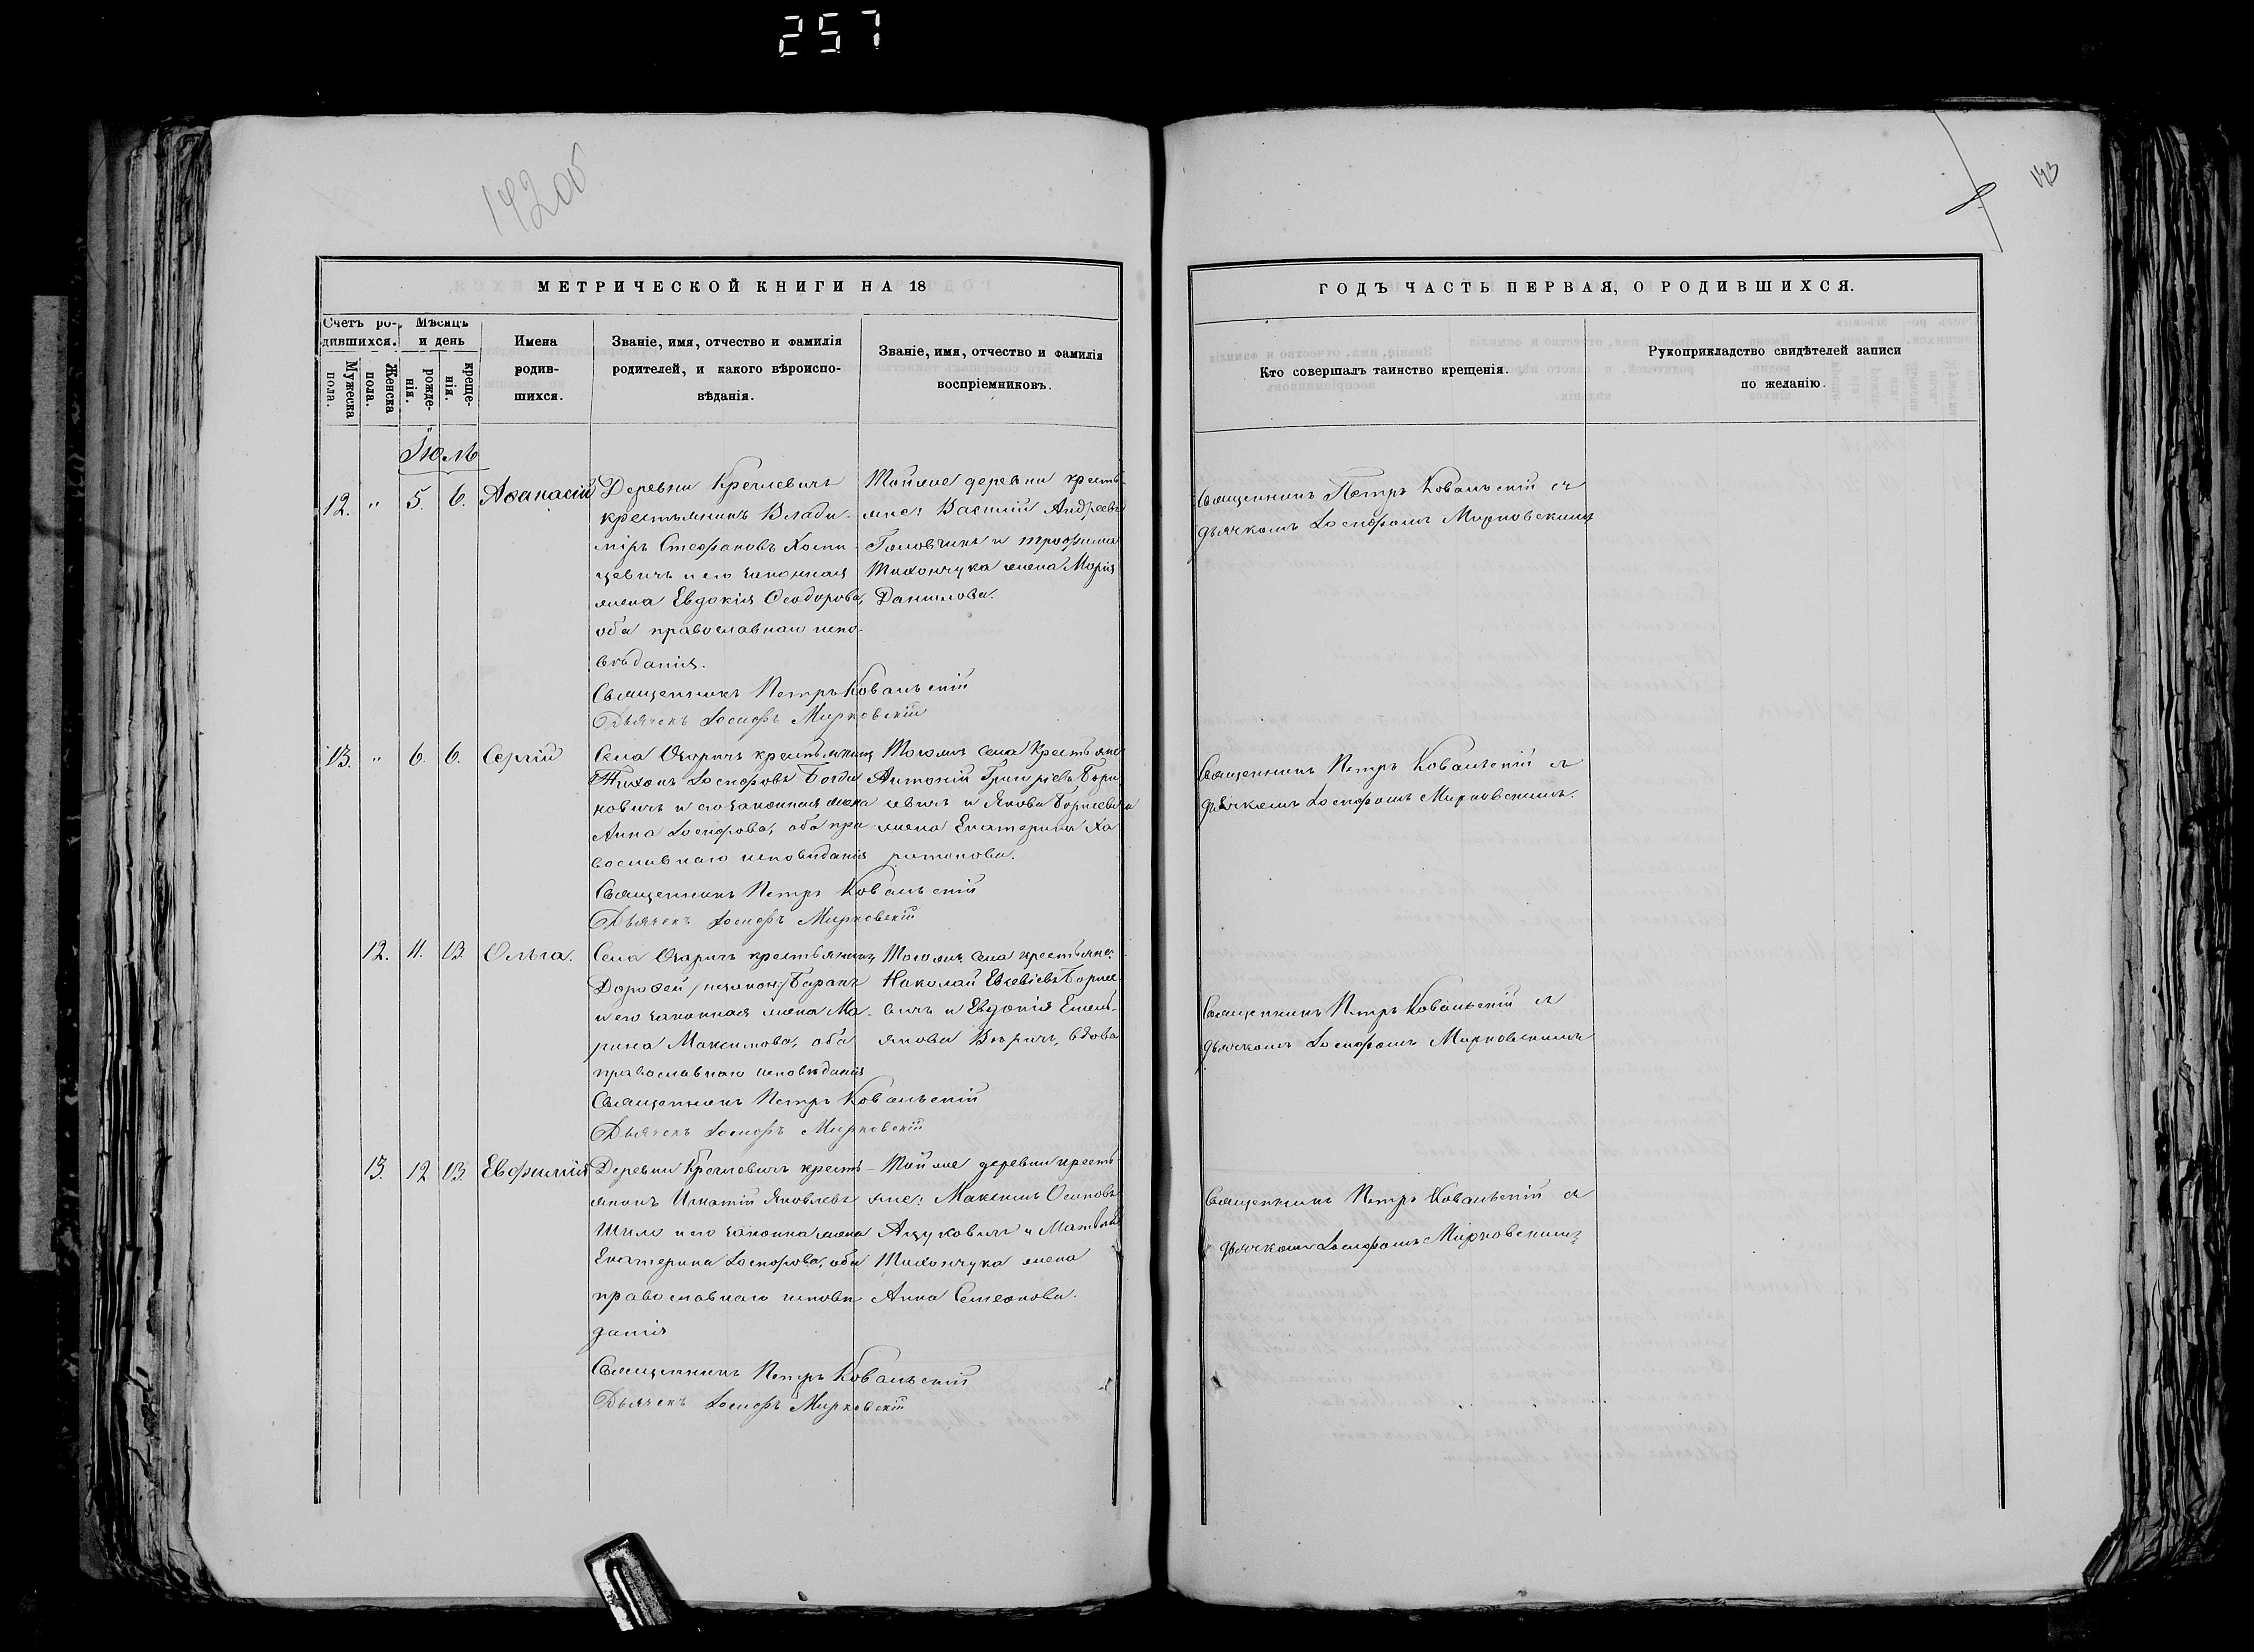 257
14205
143
МЕТРИЧЕСКОЙ КНИГИ НА 18
ГОДЪ ЧАСТЬ ПЕРВАЯ, О РОДИВШИХСЯ.
Счетъ ро-
дившихся.
Мужеска пола.
Женска пола.
Мѣсяцъ
и день
рожде-
нія.
креще-
нія.
Имена
родив-
шихся.
Званіе, имя, отчество и фамилія
родителей, и какого вѣроиспо-
вѣданія.
Званіе, имя, отчество и фамилія
воспріемниковъ.
Кто совершалъ таинство крещенія.
Рукоприкладство свидѣтелей записи
по желанію.
Іюль
12. " 5. 6. Аѳанасій
Деревни Кречневичъ
крестьянинъ Влади-
міръ Стефановъ
и его законная
жена Евдокія Ѳеодорова,
оба православнаго испо-
вѣданія.
Священникъ Петръ Ковальскій
Дьячекъ Іосифъ Мирковскій
Той же деревни кресть-
яне: Василій Андреевъ
и Трофима
Тихончука жена Марія
Данилова.
Священникъ Петръ Ковальскій съ
дьячкомъ Іосифомъ Мирковскимъ
13. " 6. 6. Сергій
Села Озаричъ крестьянинъ
Тихонъ Іосифовъ Богда
новичъ и его законная жена
Анна Іосифова, оба пра-
вославнаго исповѣданія
Священникъ Петръ Ковальскій
Дьячекъ Іосифъ Мирковскій
Того же села Крестьяне
Антоній Григоріевъ Бори
севичъ и Якова Борисевича
жена Екатерина Ха
ритонова.
Священникъ Петръ Ковальскій съ
дьячкомъ Іосифомъ Мирковскимъ.
12. 11. 13. Ольга.
Села Озаричъ крестьянинъ
Дорофей /незакон:/ Баранъ
и его законная жена Ма-
рина Максимова, оба
православнаго исповѣданія
Священникъ Петръ Ковальскій
Дьячекъ Іосифъ Мирковскій
Того же села крестьяне:
Николай Евсевіевъ Борисе
вичъ и Евдокія Емель-
янова вдова
Священникъ Петръ Ковальскій съ
дьячкомъ Іосифомъ Мирковскимъ
13. 12 13. Евфимія
Деревни Кречневичъ кресть-
янинъ Игнатій Яковлевъ
Шило и его законна жена
Екатерина Іосифова, оба
православнаго исповѣ
данія
Священникъ Петръ Ковальскій
Дьячекъ Іосифъ Мирковскій
Той же деревни кресть
яне: Максимъ Осиповъ
и Матвѣя
Тихончука жена
Анна Семеонова.
Священникъ Петръ Ковальскій съ
дьячкомъ Іосифомъ Мирковскимъ